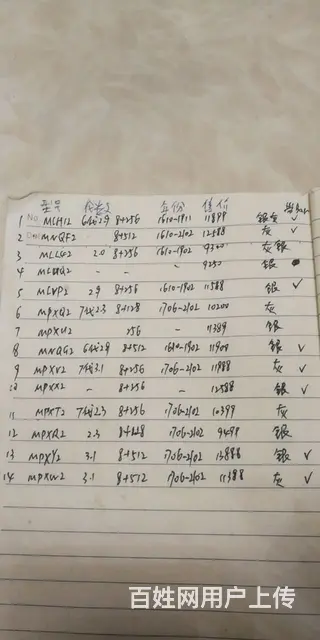 型号 年份 售价
1 No MLH12 64i2.9 8+256 1610-1911 11899 银灰 ✓
2 Date MNQF2 8+512 1610-2102 12488 灰 ✓
3 MLL42 2.0 8+256 1610-1902 9300 灰银
4 MLUQ2 - - - 9250 银
5 MLVP2 2.9 8+256 1610-1902 11588 银 ✓
6 MPXQ2 74i2.3 8+128 1706-2102 10200 灰
7 MPXU2 256 - 11389 银
8 MNQG2 64i2.9 8+512 1610-1902 11900 银 ✓
9 MPXV2 74i3.1 8+256 1706-2102 11988 灰 ✓
10 MPXX2 - 8+256 - 12588 银 ✓
11 MPXT2 74i2.3 8+256 1706-2102 10399 灰
12 MPXR2 2.3 8+128 1706-2102 9498 银
13 MPXY2 3.1 8+512 1706-2102 13888 银 ✓
14 MPXW2 3.1 8+512 1706-2102 11388 灰 ✓
百姓网用户上传